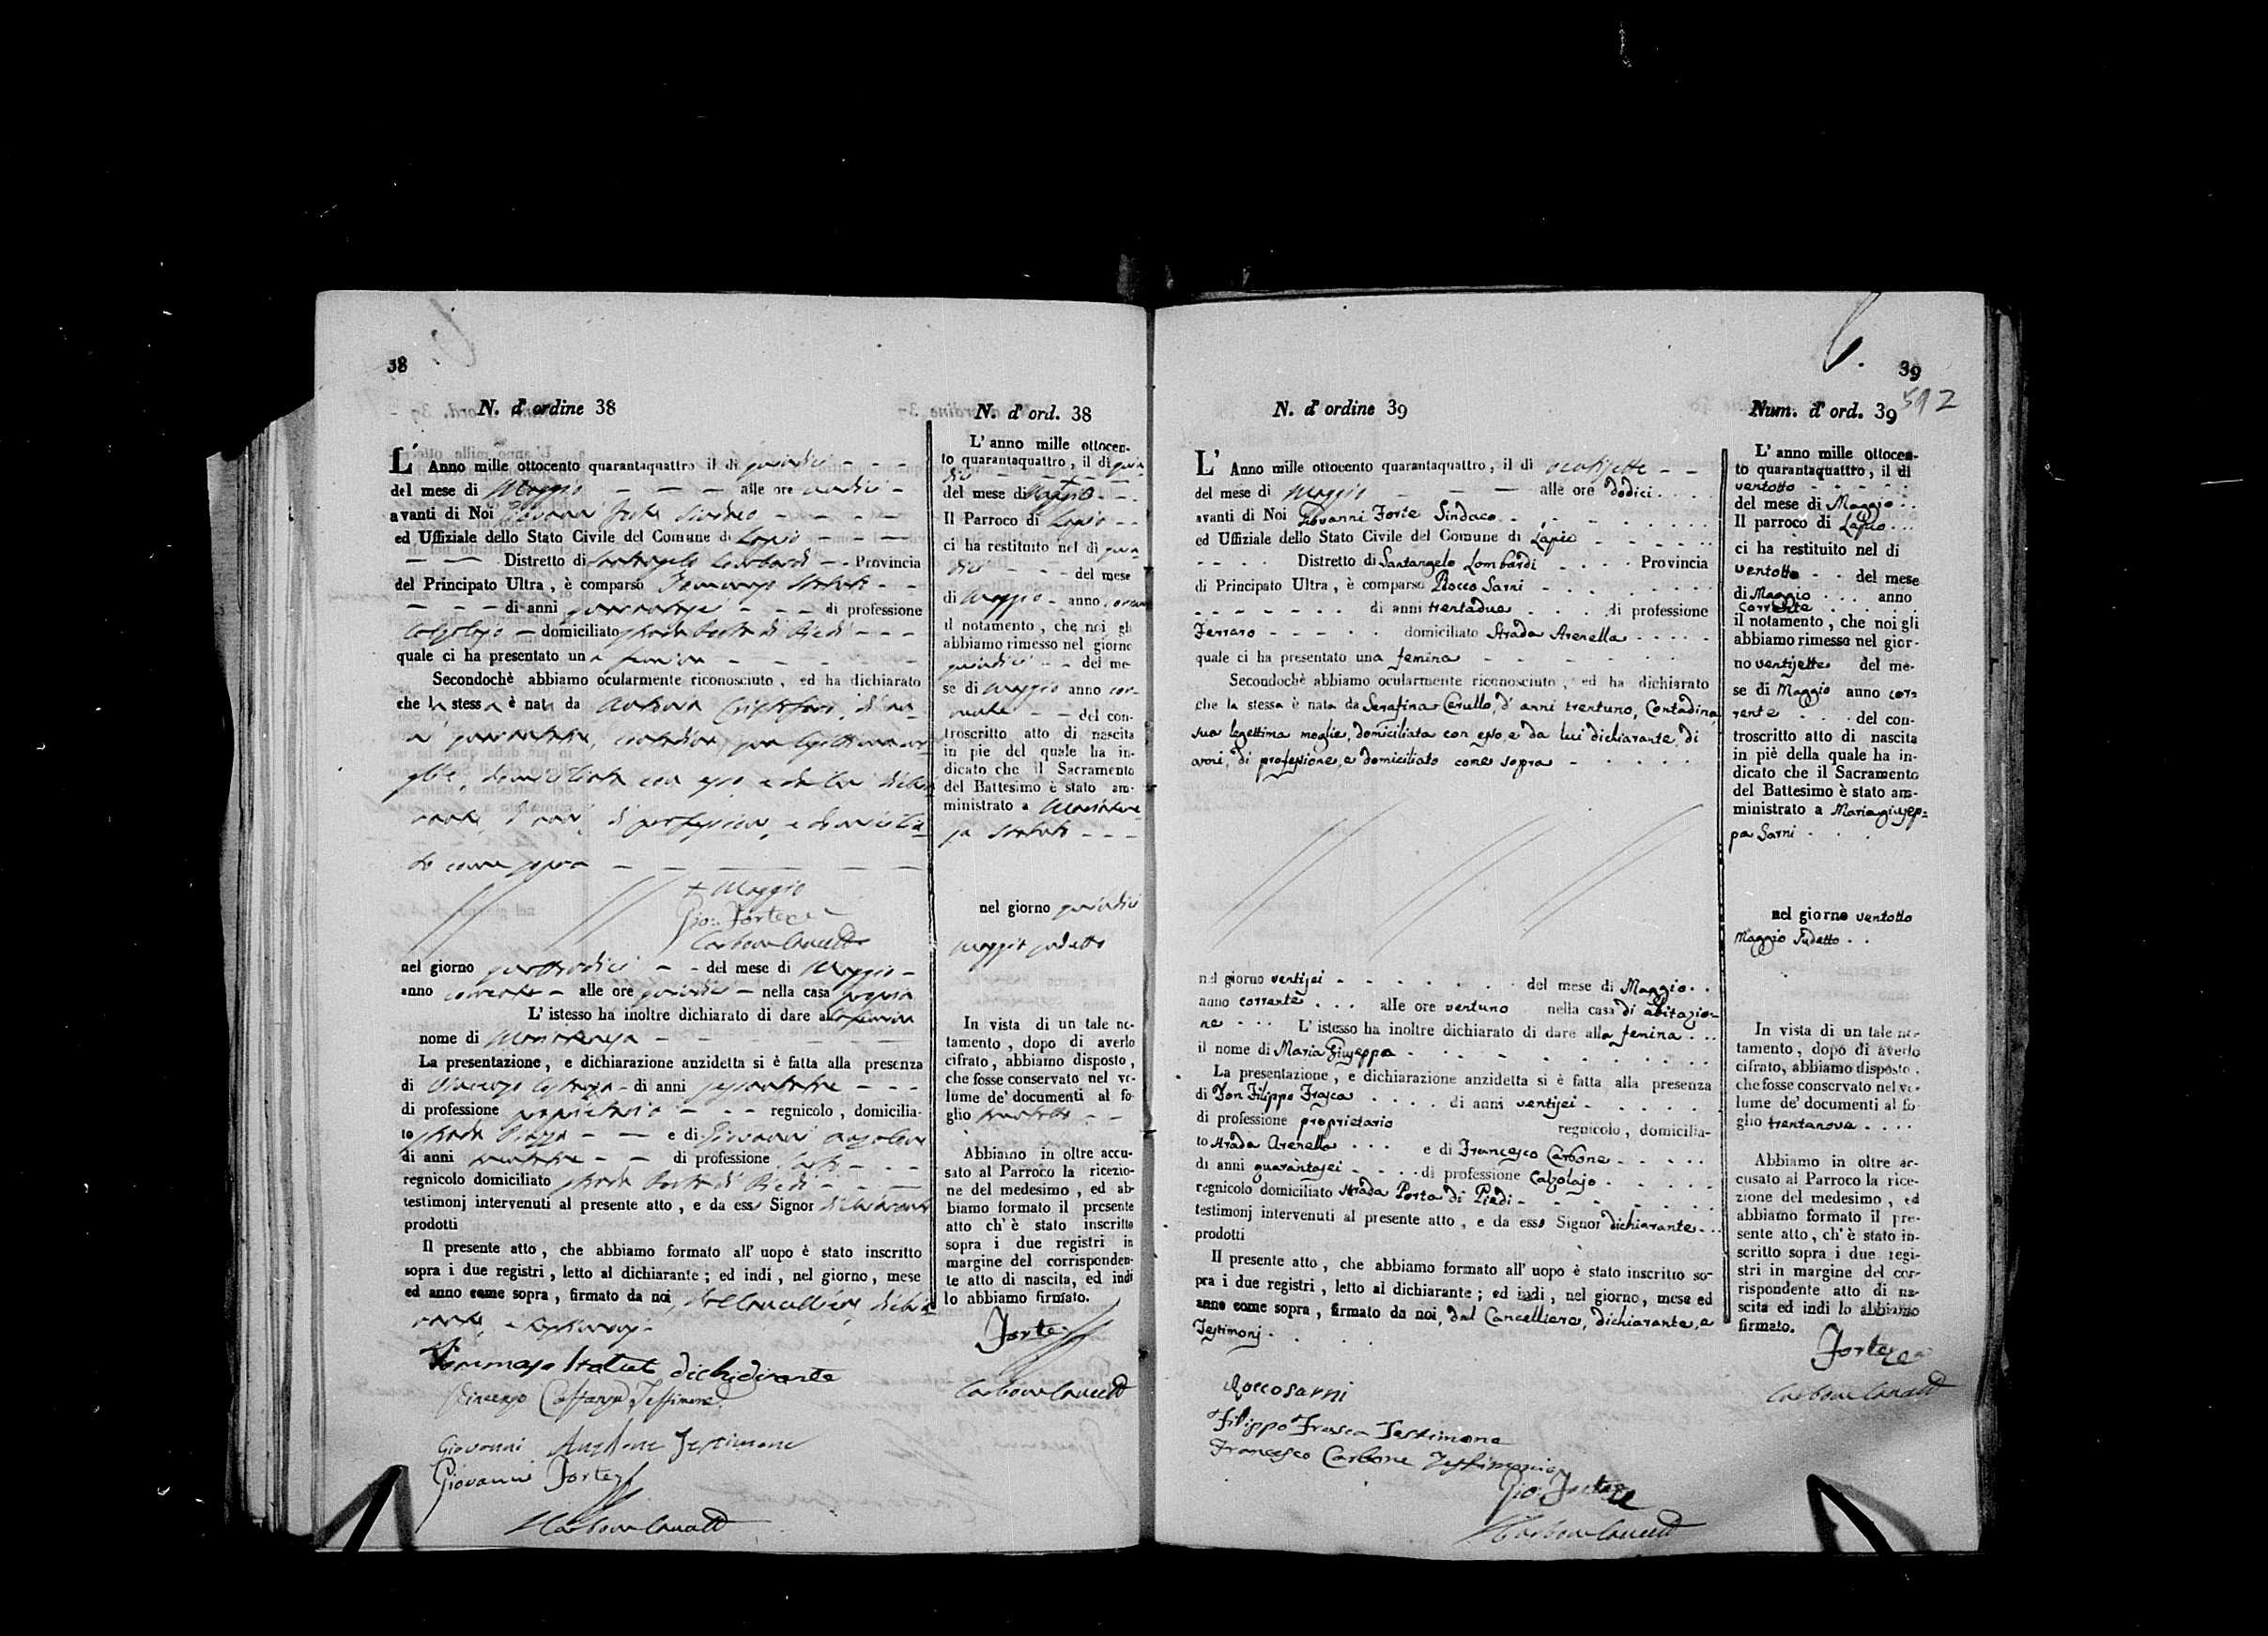 38
N. d' ordine 38
L' Anno mille ottocento quarantaquattro il di quindici
del mese di Maggio alle ore undici
avanti di Noi Giovanni Forte Sindaco
ed Uffiziale dello Stato Civile del Comune di Lapio
Distretto di Santangelo Lombardi Provincia
del Principato Ultra, è comparso Tommaso
di anni di professione
Calzolajo domiciliato strada Porta di Piedi
quale ci ha presentato una femina
Secondochè abbiamo ocularmente riconosciuto, ed ha dichiarato
che la stessa è nata da di an-
ni quarantatre, contadina sua legittima mo-
glie, domiciliata con esso e da lui dichia-
rante, d' anni, di professione, e domicilia-
to come sopra
+ Maggio
Gio: Forte
Carbone Cancell
nel giorno quattordici del mese di Maggio
anno corrente alle ore quindici nella casa propria
L' istesso ha inoltre dichiarato di dare alla femina
nome di
La presentazione, e dichiarazione anzidetta si è fatta alla presenza
di Vincenzo Castanza di anni sessantatre
di professione proprietario regnicolo, domicilia-
to strada Piazza e di Giovanni
di anni di professione
regnicolo domiciliato strada Porta di Piedi
testimonj intervenuti al presente atto, e da esso Signor dichiarante
prodotti
Il presente atto, che abbiamo formato all' uopo è stato inscritto
sopra i due registri, letto al dichiarante; ed indi, nel giorno, mese
ed anno come sopra, firmato da noi, dal Cancelliere, dichia-
rante, e testimonj
Tommaso dichiarante
Vincenzo Castanza Testimone
Giovanni Testimone
Giovanni Forte
Carbone Cancell
N. d' ord. 38
L' anno mille ottocen-
to quarantaquattro, il di quin-
dici
del mese di Maggio
Il Parroco di Lapio
ci ha restituito nel di quin-
dici del mese
di Maggio anno corrente
il notamento, che noi gli
abbiamo rimesso nel giorno
quindici del me-
se di Maggio anno cor-
rente del con-
troscritto atto di nascita
in pie del quale ha in-
dicato che il Sacramento
del Battesimo è stato am-
ministrato a
nel giorno quindici
Maggio sudetto
In vista di un tale no-
tamento, dopo di averlo
cifrato, abbiamo disposto,
che fosse conservato nel vo-
lume de' documenti al fo-
glio trentotto
Abbiamo in oltre accu-
sato al Parroco la ricezio-
ne del medesimo, ed ab-
biamo formato il presente
atto ch' è stato inscritto
sopra i due registri in
margine del corrisponden-
te atto di nascita, ed indi
lo abbiamo firmato.
Forte
Carbone Cancell
39
592
N. d' ordine 39
L' Anno mille ottocento quarantaquattro, il di ventisette
del mese di Maggio alle ore dodici
avanti di Noi Giovanni Forte Sindaco
ed Uffiziale dello Stato Civile del Comune di Lapio
Distretto di Santangelo Lombardi Provincia
di Principato Ultra, è comparso Rocco Sarni
di anni trentadue di professione
Ferraro domiciliato Strada Arenella
quale ci ha presentato una femina
Secondochè abbiamo ocularmente riconosciuto, ed ha dichiarato
che la stessa è nata da Serafina Cerullo, d' anni trentuno, Contadina,
sua legettima moglie, domiciliata con esso, e da lui dichiarante, di
anni, di professione, e domiciliato come sopra
nel giorno ventisei del mese di Maggio
anno corrente alle ore ventuno nella casa di abitazio-
ne L' istesso ha inoltre dichiarato di dare alla femina
il nome di Maria Giuseppa
La presentazione, e dichiarazione anzidetta si è fatta alla presenza
di Don Filippo Frasca di anni ventisei
di professione proprietario regnicolo, domicilia-
to strada Arenella e di Francesco Carbone
di anni quarantasei di professione Calzolajo
regnicolo domiciliato strada Porta di Piedi
testimonj intervenuti al presente atto, e da esso Signor dichiarante
prodotti
Il presente atto, che abbiamo formato all' uopo è stato inscritto so-
pra i due registri, letto al dichiarante; ed indi, nel giorno, mese ed
anno come sopra, firmato da noi, dal Cancelliere, dichiarante, e
Testimonj
Rocco Sarni
Filippo Frasca Testimone
Francesco Carbone Testimonio
Gio: Forte
Carbone Cancell
Num. d' ord. 39
L' anno mille ottocen-
to quarantaquattro, il di
ventotto
del mese di Maggio
Il parroco di Lapio
ci ha restituito nel di
ventotto del mese
di Maggio anno
corrente
il notamento, che noi gli
abbiamo rimesso nel gior-
no ventisette del me-
se di Maggio anno cor-
rente del con-
troscritto atto di nascita
in piè della quale ha in-
dicato che il Sacramento
del Battesimo è stato am-
ministrato a Mariagiusep-
pa Sarni
nel giorno ventotto
Maggio sudetto
In vista di un tale no-
tamento, dopo di averlo
cifrato, abbiamo disposto,
che fosse conservato nel vo-
lume de' documenti al fo-
glio trentanove
Abbiamo in oltre ac-
cusato al Parroco la rice-
zione del medesimo, ed
abbiamo formato il pre-
sente atto, ch' è stato in-
scritto sopra i due regi-
stri in margine del cor-
rispondente atto di na-
scita ed indi lo abbiamo
firmato.
Forte
Carbone Cancell